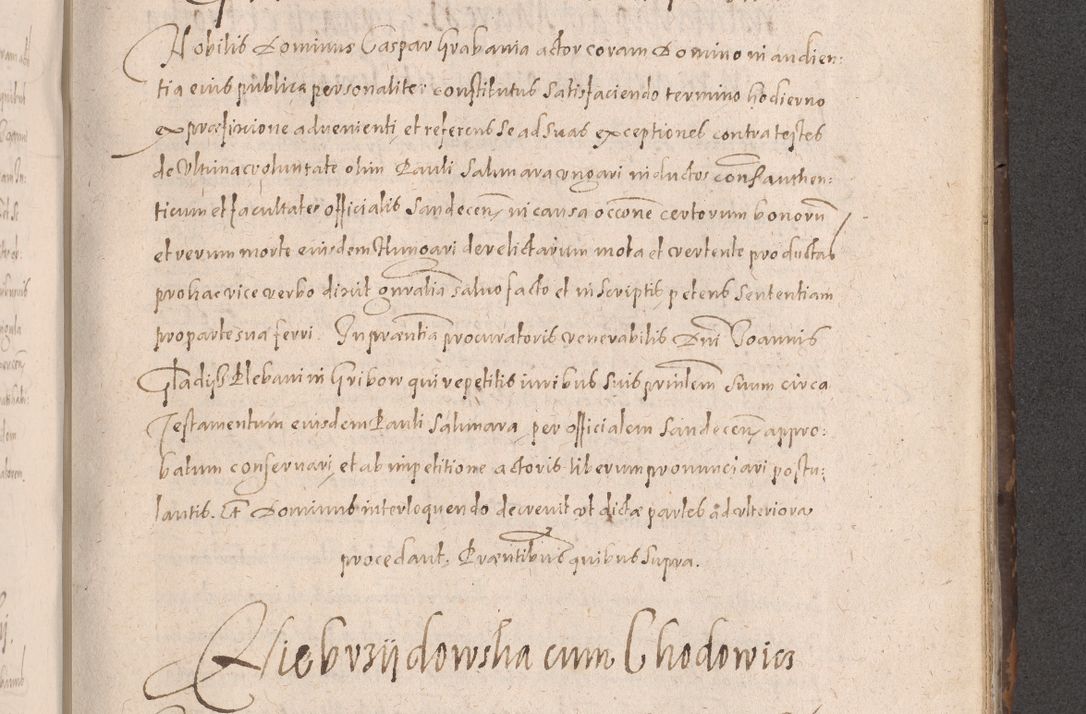 Nobilis Dominus Caspar Grabania actor coram Domino in audien:
tia eius publica personaliter constitutus satisfaciendo termino hodierno
ex præfixione advenienti et referens se ad suas exceptiones contra testes
de ultima voluntate olim Pauli Salmara ungari inductos
ticum et facultates officialis Sandecen in causa occōne certorum bonorū
et rerum morte eiusdem Hungari derelictarum mota et vertente productas
pro hac vice verbo dixit gnralia salvo facto et in scriptis petens sententiam
pro parte sua ferri. In præntia procuratoris venerabilis Dni Joannis
Gladijß Plebani in Gribow qui repetitis iuribus suis suum circa
Testamentum eiusdem Pauli Salmara per officialem Sandecen appro:
batum conservari, et ab impetitione actoris liberum pronunciari postu:
lantis. Et Dominus interloquendo decrevit ut dictæ partes ad ulteriora
procedant, Præntibus quibus supra.
Niebrzijdowska cum Chodowicz